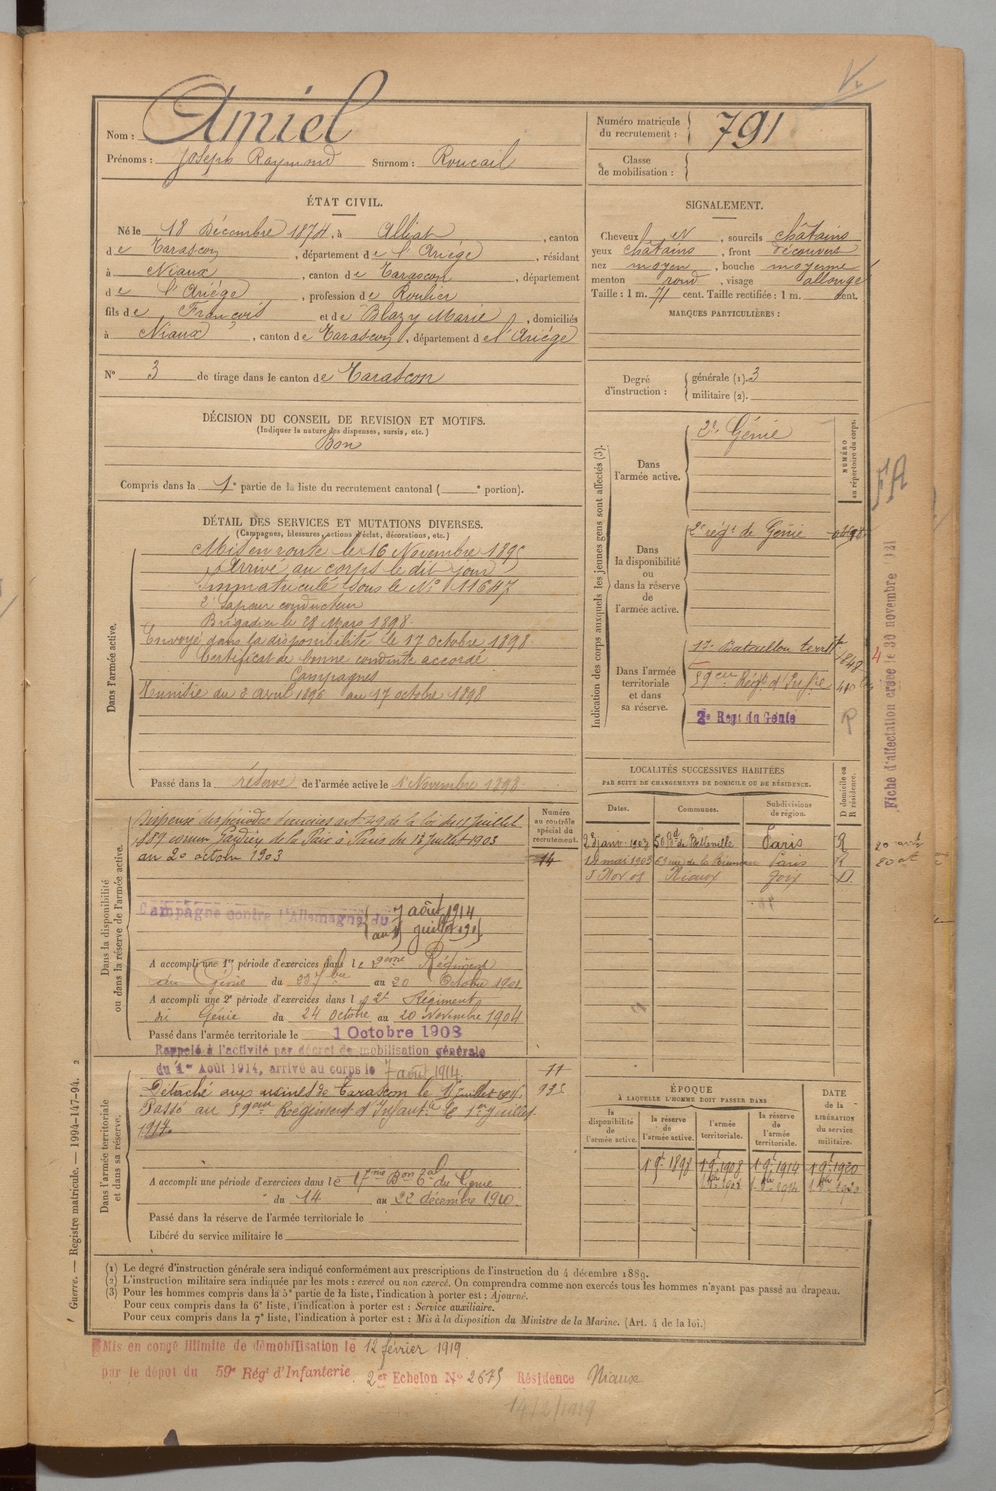 Nom : Amiel
Prénoms : Joseph Raymond Surnom : Roucail
Numéro matricule du recrutement : 791
Classe de mobilisation :
ÉTAT CIVIL.
Né le 18 Décembre 1874, à Alliat, canton
de Tarascon, département de l'Ariège, résidant
à Niaux, canton de Tarascon, département
de l'Ariège, profession de Roulier
fils de François et de Blazy Marie, domiciliés
à Niaux, canton de Tarascon, département de l'Ariège
N° 3 de tirage dans le canton de Tarascon
DÉCISION DU CONSEIL DE REVISION ET MOTIFS.
(Indiquer la nature des dispenses, sursis, etc.)
Bon
Compris dans la 1e partie de la liste du recrutement cantonal ( e portion).
SIGNALEMENT.
Cheveux et N, sourcils châtains
yeux châtains, front découvert
nez moyen, bouche moyenne
menton rond, visage allongé
Taille : 1 m. 71 cent. Taille rectifiée : 1 m. cent.
MARQUES PARTICULIÈRES :
Degré d'instruction : générale (1). 3
militaire (2).
DÉTAIL DES SERVICES ET MUTATIONS DIVERSES.
(Campagnes, blessures, actions d'éclat, décorations, etc.)
Dans l'armée active.
Mis en route le 16 Novembre 1895
Arrivé au corps le dit jour
Immatriculé sous le N° 11647
2e Sapeur conducteur
Brigadier le 28 Mars 1898
Envoyé dans la disponibilité le 17 octobre 1898
Certificat de bonne conduite accordé
Campagnes
Tunisie du 2 avril 1896 au 17 octobre 1898
Passé dans la réserve de l'armée active le 1 Novembre 1898
Indication des corps auxquels les jeunes gens sont affectés (3).
NUMÉRO au répertoire du corps.
Dans l'armée active.
2e Génie
Dans la disponibilité ou dans la réserve de l'armée active.
2e régt de Génie
Dans l'armée territoriale et dans sa réserve.
17e Bataillon territl
59eme Régt d'Infie
2e Regt du Génie
R
FA
Fiche d'affectation créée le 30 novembre
Dans la disponibilité ou dans la réserve de l'armée active.
Dispensé des périodes d'exercices art. 49 de la loi du 15 Juillet
1889 comme Gardien de la Paix à Paris du 13 Juillet 1903
au 20 octobre 1903
Numéro au contrôle spécial du recrutement.
14
Campagne contre l'Allemagne du 7 août 1914
au 1 juillet 191
A accompli une 1re période d'exercices dans le 2eme Régiment
du Génie du 23 7bre au 20 Octobre 1901
A accompli une 2e période d'exercices dans le 2e Régiment
du Génie du 24 Octobre au 20 Novembre 1904
Passé dans l'armée territoriale le 1 Octobre 1908
Rappelé à l'activité par décret de mobilisation générale
du 1er Août 1914, arrivé au corps le 7 août 1914
Dans l'armée territoriale et dans sa réserve.
Détaché aux usines de Tarascon le 1er juillet
Passé au 59eme Régiment d'Infantie le 1er juillet
1917
A accompli une période d'exercices dans le 17me Bon Tal du Génie
du 14 au 22 décembre 1910
Passé dans la réserve de l'armée territoriale le
Libéré du service militaire le
LOCALITÉS SUCCESSIVES HABITÉES
PAR SUITE DE CHANGEMENTS DE DOMICILE OU DE RÉSIDENCE.
Dates. Communes. Subdivisions de région. D domicile ou R résidence.
23 janv. 1903 50 Bd de Belleville Paris R
18 mai 1903 Paris R
3 Nov Niaux Foix D
ÉPOQUE
À LAQUELLE L'HOMME DOIT PASSER DANS
la disponibilité de l'armée active. la réserve de l'armée active. l'armée territoriale. la réserve de l'armée territoriale. DATE de la LIBÉRATION du service militaire.
1 9e 1898 1 9e 1908 1 9e 1914 1 9e 1920
(1) Le degré d'instruction générale sera indiqué conformément aux prescriptions de l'instruction du 4 décembre 1889.
(2) L'instruction militaire sera indiquée par les mots : exercé ou non exercé. On comprendra comme non exercés tous les hommes n'ayant pas passé au drapeau.
(3) Pour les hommes compris dans la 5e partie de la liste, l'indication à porter est : Ajourné.
Pour ceux compris dans la 6e liste, l'indication à porter est : Service auxiliaire.
Pour ceux compris dans la 7e liste, l'indication à porter est : Mis à la disposition du Ministre de la Marine. (Art. 4 de la loi.)
Guerre. — Registre matricule. — 1994-147-94. 2
Mis en congé illimité de démobilisation le 12 février 1919
par le dépôt du 59e Régt d'Infanterie 2er Echelon N° 2675 Résidence Niaux
14/2/1919